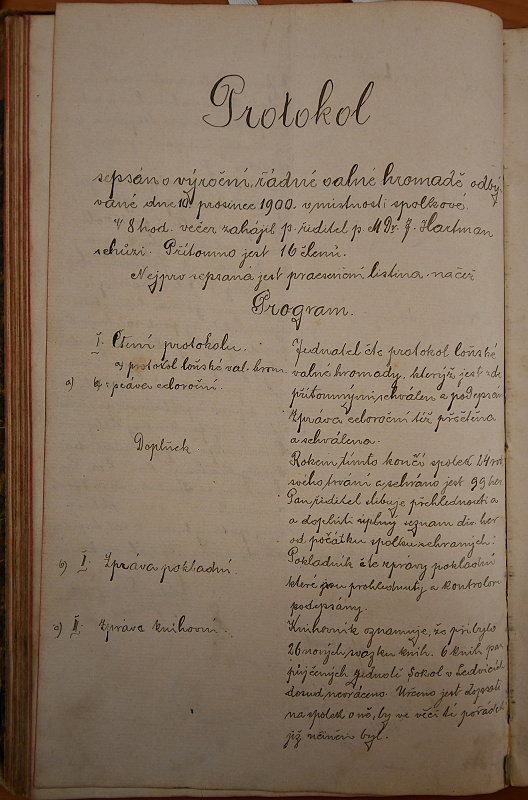 Protokol
sepsán o výroční, řádné valné hromadě odbý-
vané dne 10. prosince 1900. v místnosti spolkové.
V 8 hod. večer zahájil p. ředitel p. MDr. J. Hartman
schůzi. Přítomno jest 16 členů.
Nejprv sepsána jest praesenční listina načež
Program.
I. Čtení protokolu.
a) protokol loňské val. hrom.
a) b) zpráva celoroční.
Doplněk.
b) I. Zpráva pokladní.
c) II. Zpráva knihovní.
Jednatel čte protokol loňské
valné hromady, kterýž jest zde
přítomnými schválen a podepsán
Zpráva celoroční též přečtena
a schválena.
Rokem tímto končí spolek 24 rok
svého trvání a sehráno jest 99 her
Pan ředitel slibuje přehlednouti a
a doplniti úplný seznam div. her
od počátku spolku sehraných:
Pokladník čte zprávy pokladní
které jsou prohlédnuty a kontrolory
podepsány.
Knihovník oznamuje, že přibylo
26 nových svazku knih. 6 knih
půjčených jednotě Sokol v Ledvicích
dosud nevráceno. Určeno jest dopsati
na spolek onó, by ve věci té pořádek
již učiněn byl.